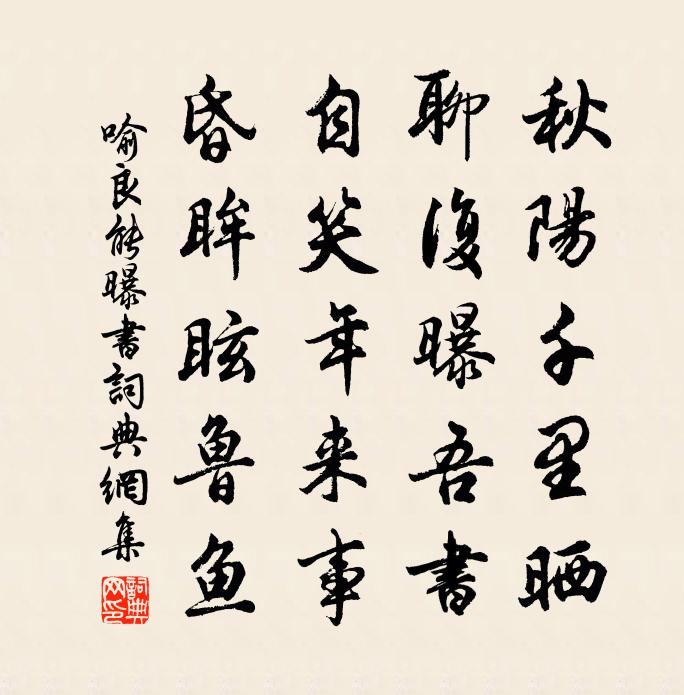 秋陽千里晒
聊復曝吾書
自笑年来事
昏眸眩魯魚
喻良能曝書詞典網集
詞典网印